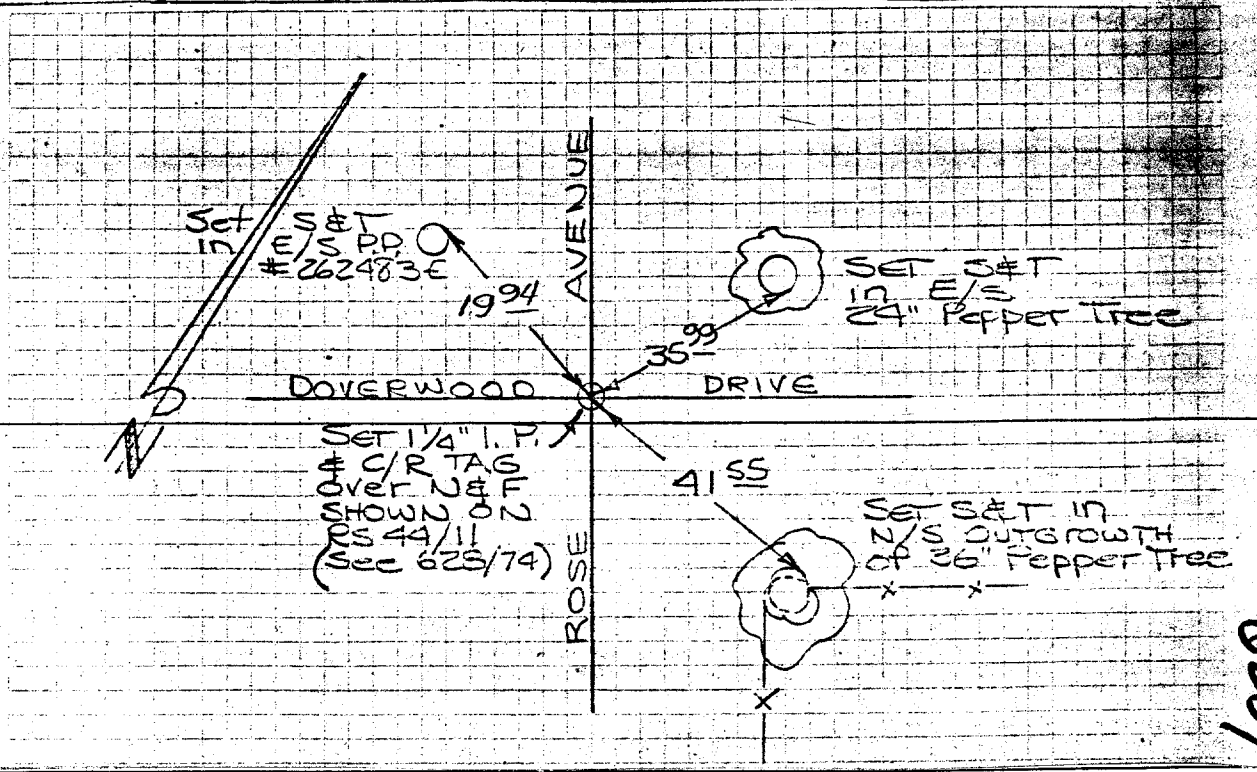 Set S&T
in E/S P.P.
#262483E
19 94
AVENUE
SET S&T
in E/S
24" Pepper Tree
35 99
DOVERWOOD DRIVE
N
SET 1 1/4" I.P.
& C/R TAG
over N&F
SHOWN ON
RS 44/11
(See 625/74)
41 55
ROSE
SET S&T in
N/S OUTGROWTH
of 26" Pepper Tree
x x
x